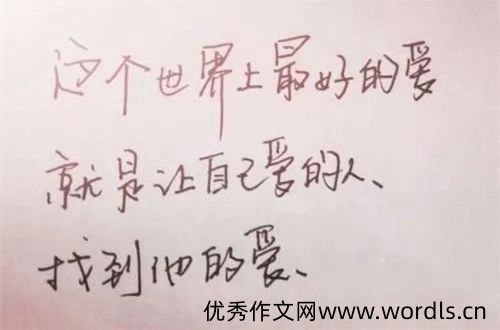 这个世界上最好的爱
就是让自己爱的人、
找到他的爱、
优秀作文网www.wordls.cn